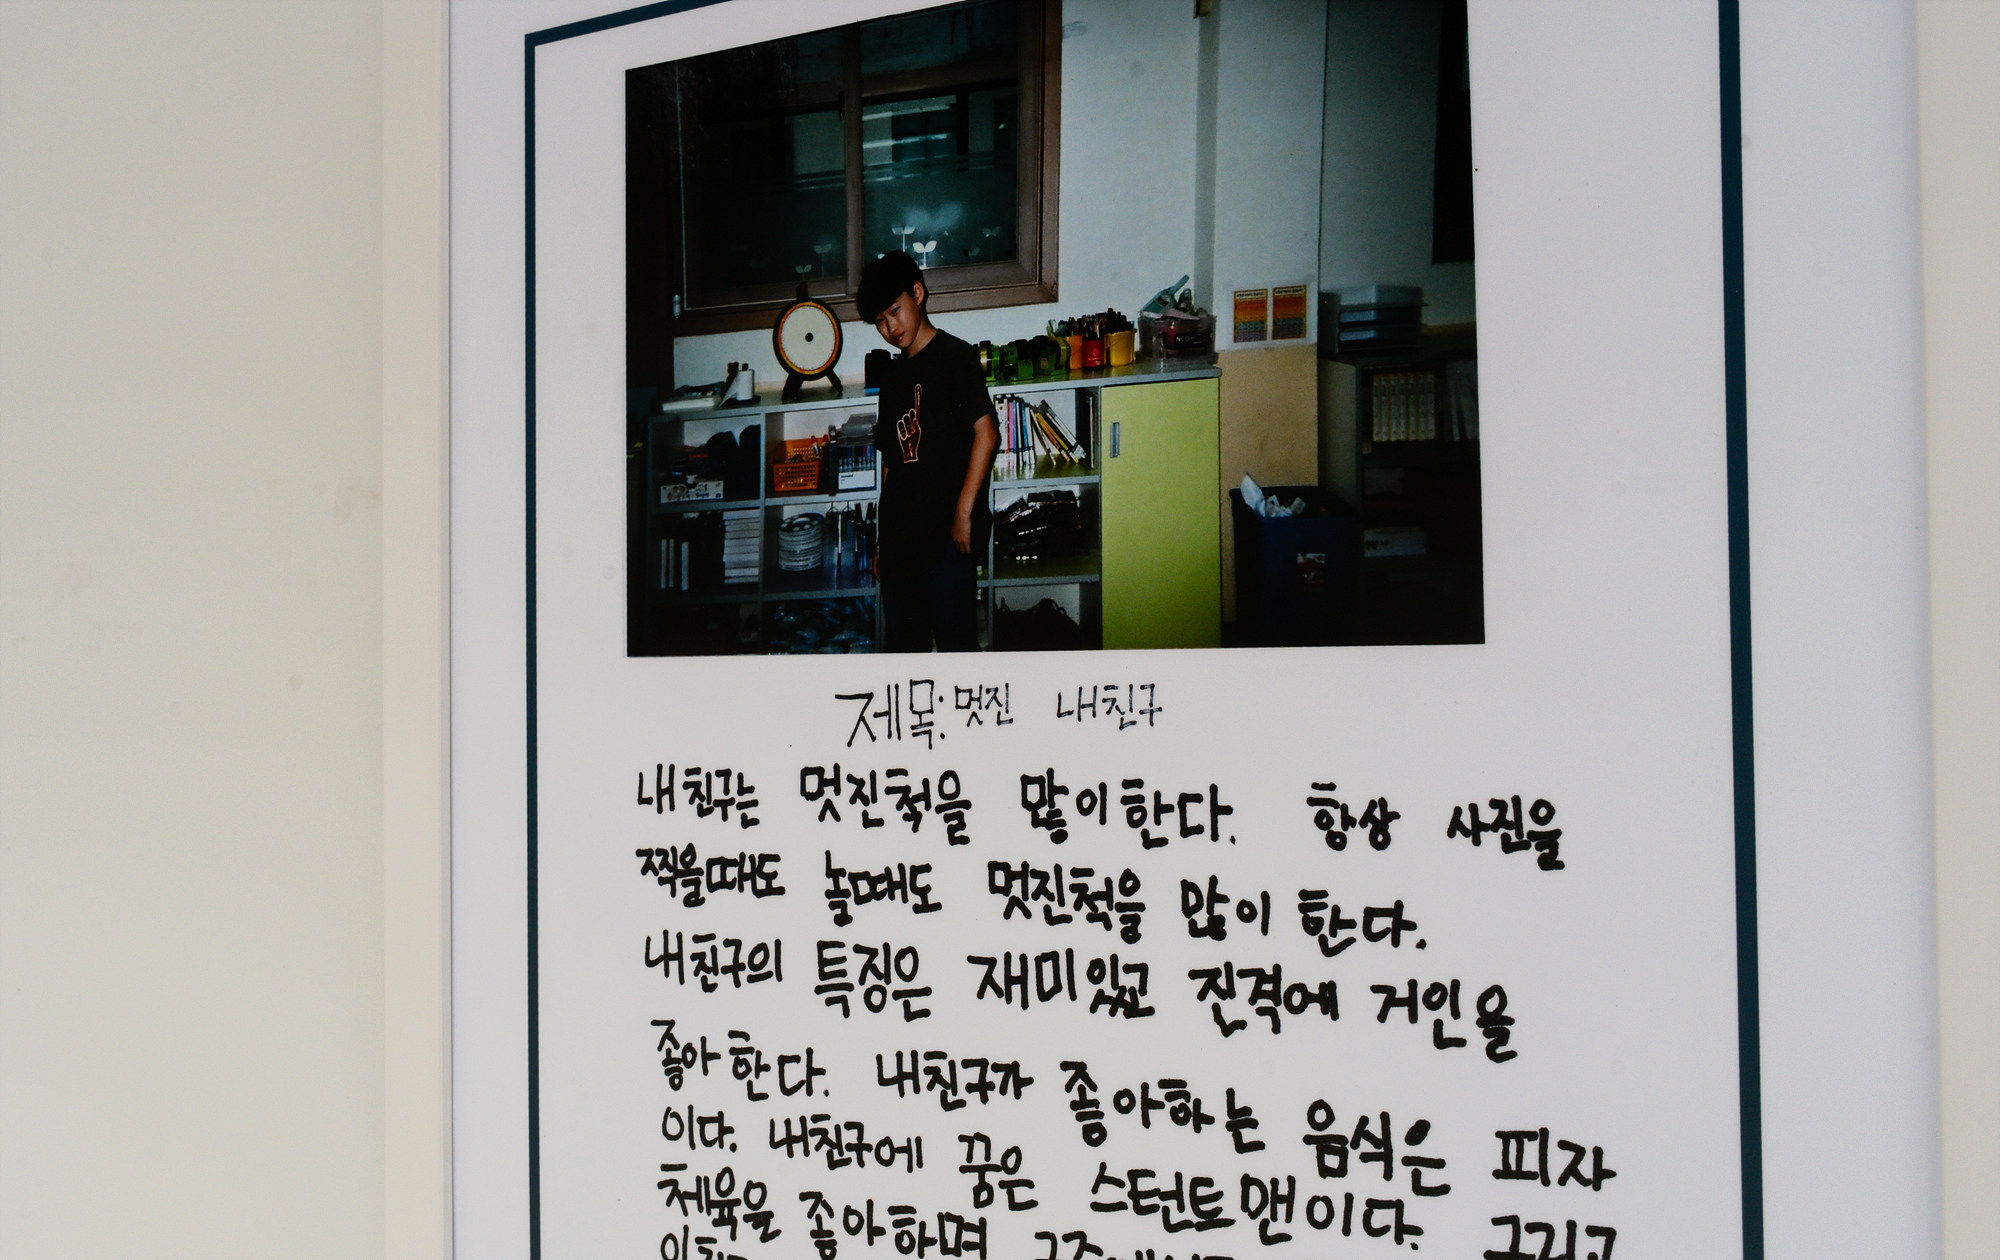 제목: 멋진 내친구
내친구는 멋진척을 많이한다. 항상 사진을
찍을때도 놀때도 멋진척을 많이 한다.
내친구의 특징은 재미있고 진격에 거인을
좋아한다. 내친구가 좋아하는 음식은 피자
이다. 내친구에 꿈은 스턴트맨이다. 그리고
체육을 좋아하며